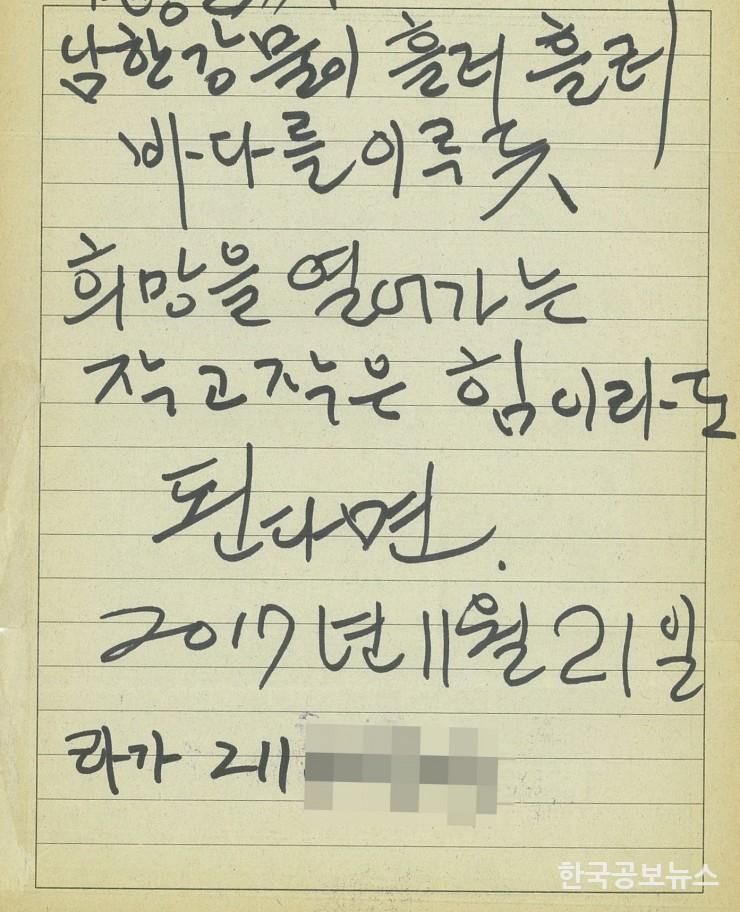 남한강물이 흘러 흘러
바다를 이루듯
희망을 열어가는
작고 작은 힘이라도
된다면.
2017년 11월 21일
라가 211
한국공보뉴스